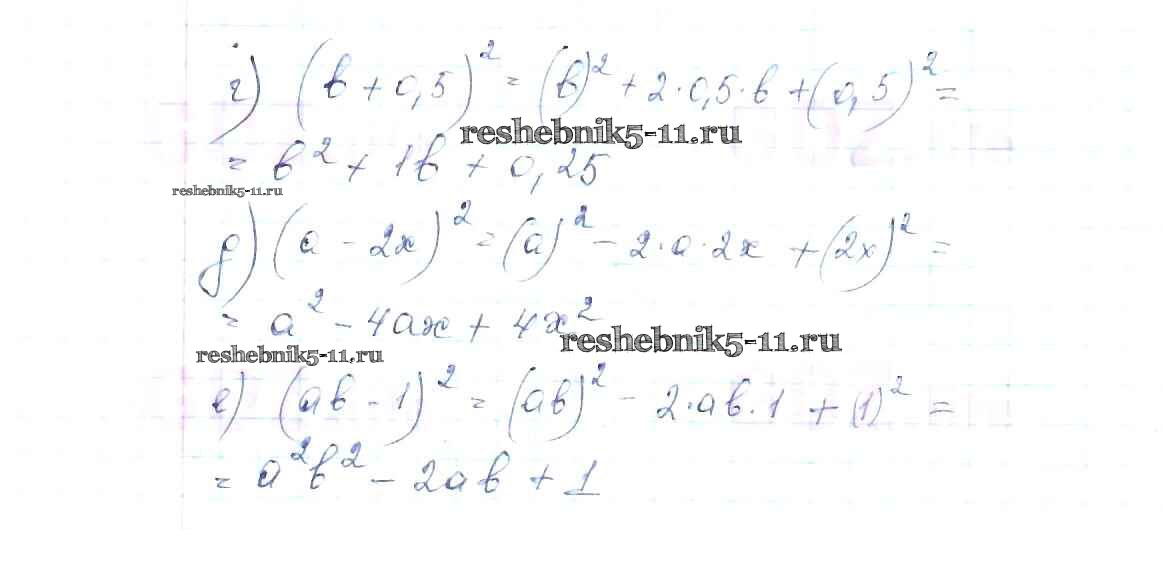 г) (b + 0,5)² = (b)² + 2·0,5·b + (0,5)² =
reshebnik5-11.ru
= b² + 1b + 0,25
reshebnik5-11.ru
д) (a - 2x)² = (a)² - 2·a·2x + (2x)² =
= a² - 4ax + 4x²
reshebnik5-11.ru
reshebnik5-11.ru
е) (ab - 1)² = (ab)² - 2·ab·1 + (1)² =
= a²b² - 2ab + 1